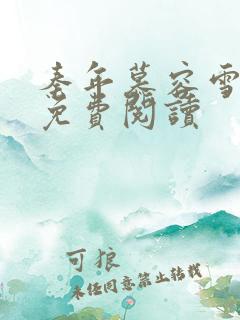 秦年慕容雪
免費閱讀
可狼
未经同意禁止转载